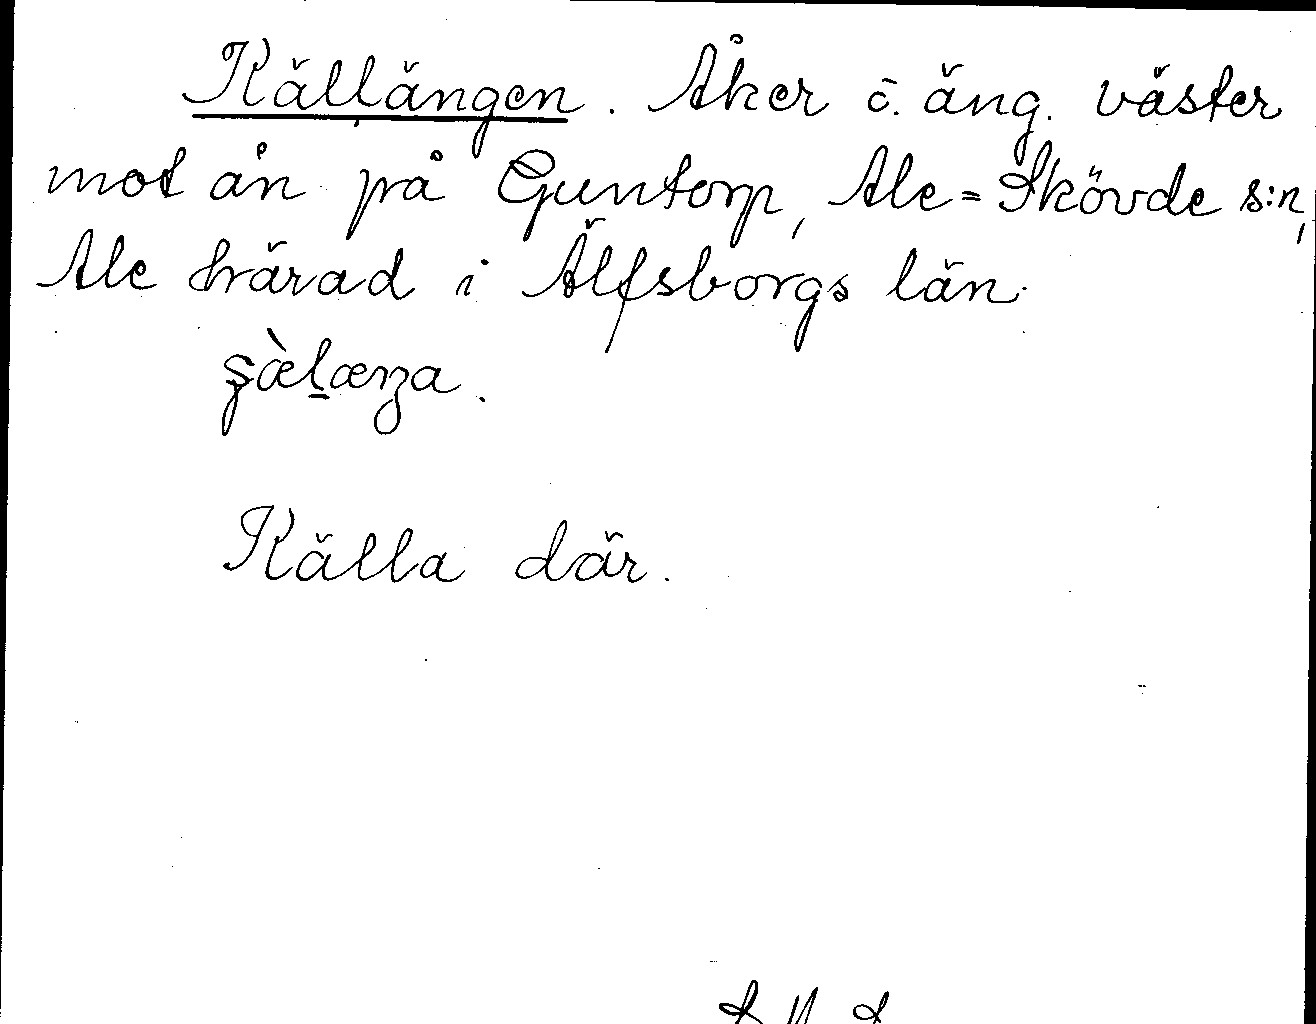 Källängen. Åker o. äng. väster
mot ån på Guntorp, Ale=Skövde s:n,
Ale härad i Älfsborgs län.
Källa där.